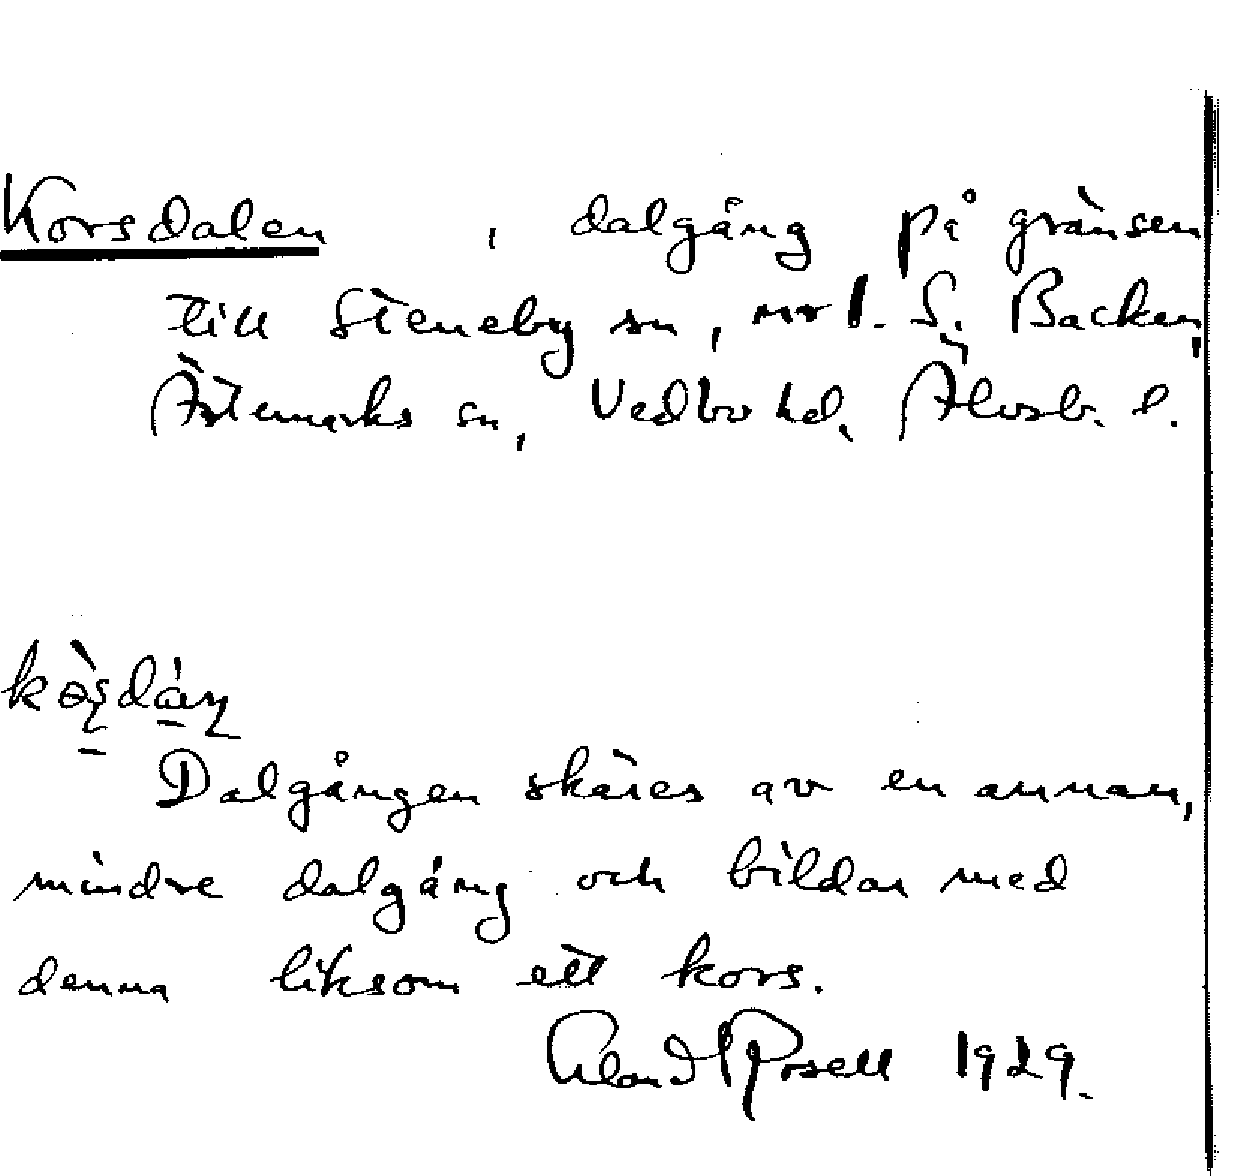 Korsdalen, dalgång på gränsen
till Steneby sn, nv l. S. Backen,
Ärtemarks sn, Vedbo hd. Älvsb. l.
Dalgången skäres av en annan,
mindre dalgång och bildar med
denna liksom ett kors.
Rosell 1929.